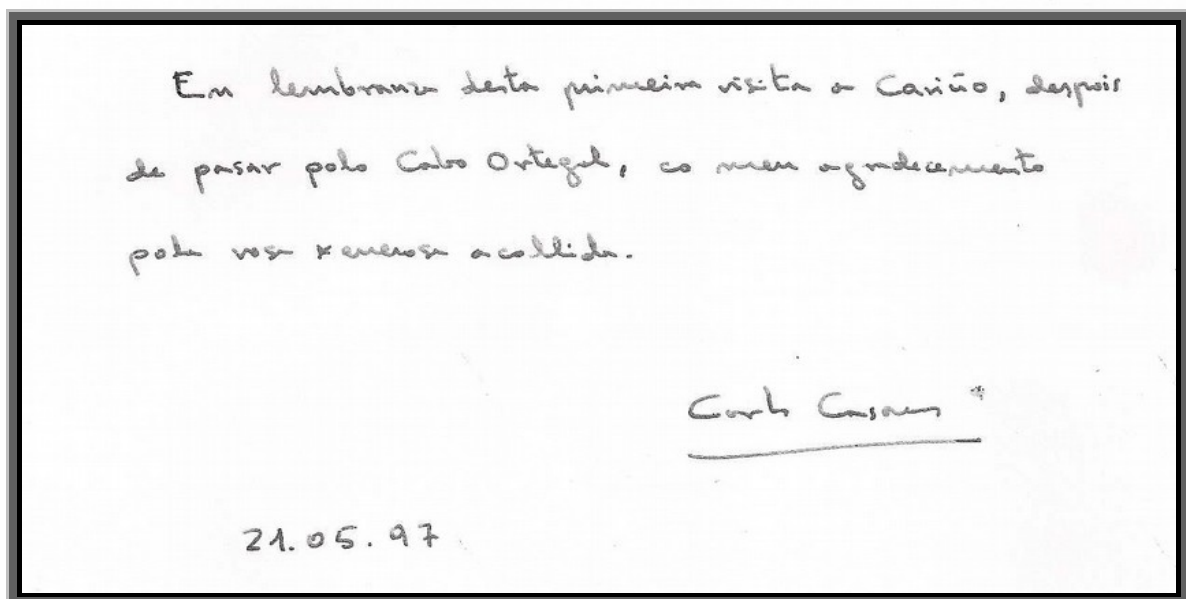 En lembranza desta primeira visita a Cariño, despois
de pasar polo Cabo Ortegal, co meu agradecemento
pola vosa xenerosa acollida.
Carlos Casares *
21.05.97